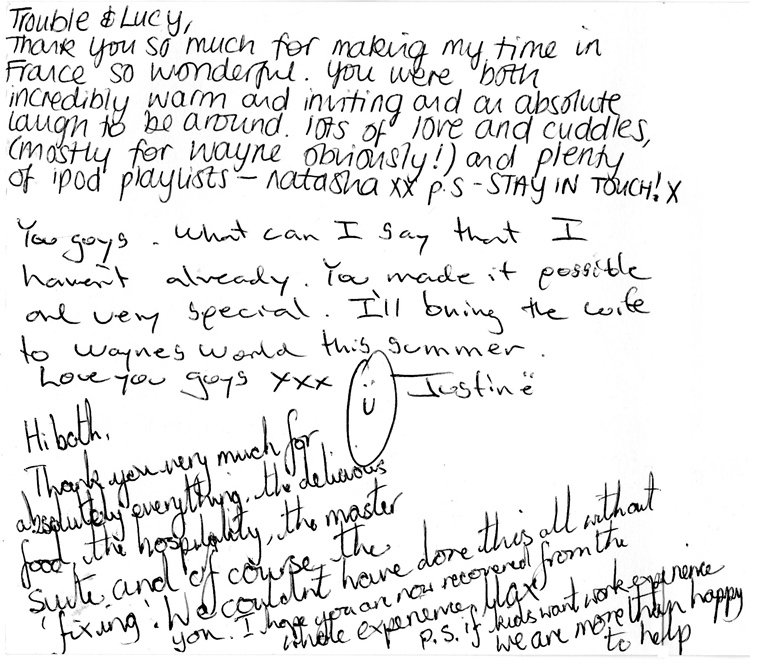 Trouble & Lucy,
Thank you so much for making my time in
France so wonderful. You were both
incredibly warm and inviting and an absolute
laugh to be around. lots of love and cuddles,
(mostly for wayne obviously!) and plenty
of ipod playlists – natasha xx p.s - STAY IN TOUCH! X
You guys. What can I say that I
haven't already. You made it possible
and very special. I'll bring the wife
to Waynes World this summer.
Love you guys xxx Justin
Hi both,
Thank you very much for
absolutely everything, the delicious
food, the hospitality, the master
suite and of course, the
'fixing'. We couldnt have done this all without
you. I hope you are now recovered from the
whole experience, Max
P.S. if kids want work experience
we are more than happy
to help